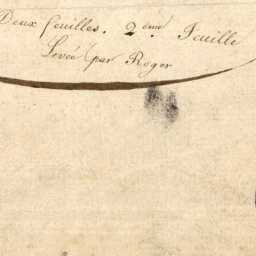 Deux feuilles. 2ème Feuille
Levée par Roger